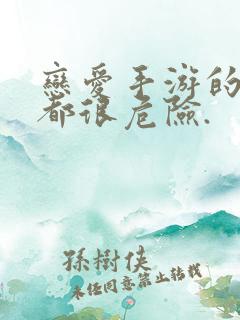 戀愛手游的
都很危險.
孫樹俠
未经同意禁止转载